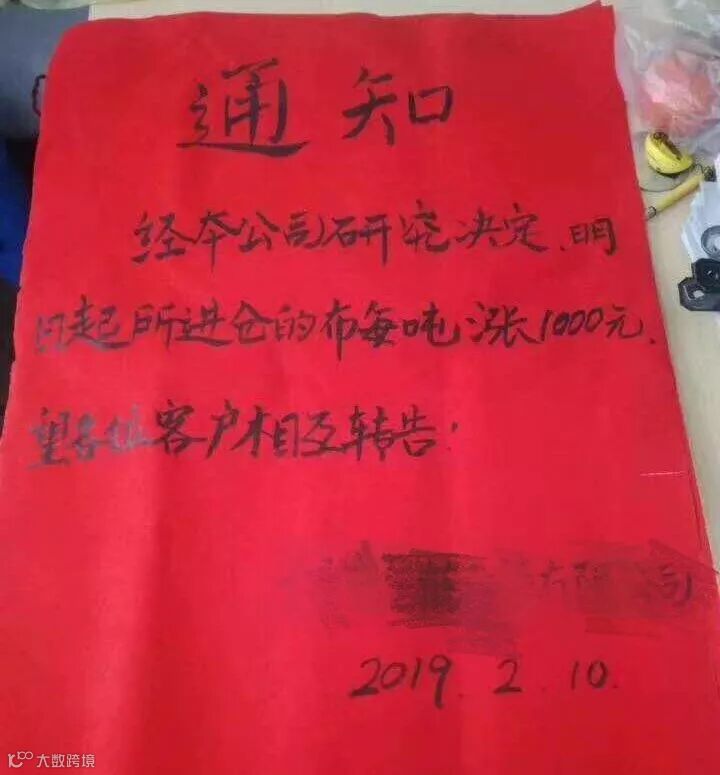 通知
经本公司研究决定、明
日起所进仓的布每吨涨1000元.
望各位客户相互转告!
有限公司
2019.2.10.
大数跨境